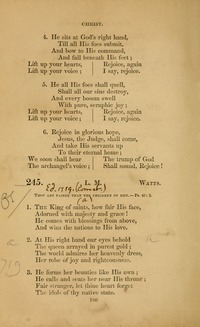 CHRIST.
4. He sits at God's right hand,
Till all His foes submit,
And bow to His command,
And fall beneath His feet;
Lift up your hearts, | Rejoice, again
Lift up your voice; | I say, rejoice.
5. He all His foes shall quell,
Shall all our sins destroy,
And every bosom swell
With pure, seraphic joy;
Lift up your hearts, | Rejoice, again
Lift up your voice; | I say, rejoice.
6. Rejoice in glorious hope,
Jesus, the Judge, shall come,
And take His servants up
To their eternal home;
We soon shall hear | The trump of God
The archangel's voice; | Shall sound, Rejoice!
245. L. M. WATTS.
Ed. 1719.
THOU ART FAIRER THAN THE CHILDREN OF MEN.—Ps. 45: 2.
(a)
1. THE King of saints, how fair His face,
Adorned with majesty and grace!
He comes with blessings from above,
And wins the nations to His love.
2. At His right hand our eyes behold
The queen arrayed in purest gold;
The world admires her heavenly dress,
Her robe of joy and righteousness.
3. He forms her beauties like His own;
He calls and seats her near His throne;
Fair stranger, let thine heart forget
The idols of thy native state.
a
719